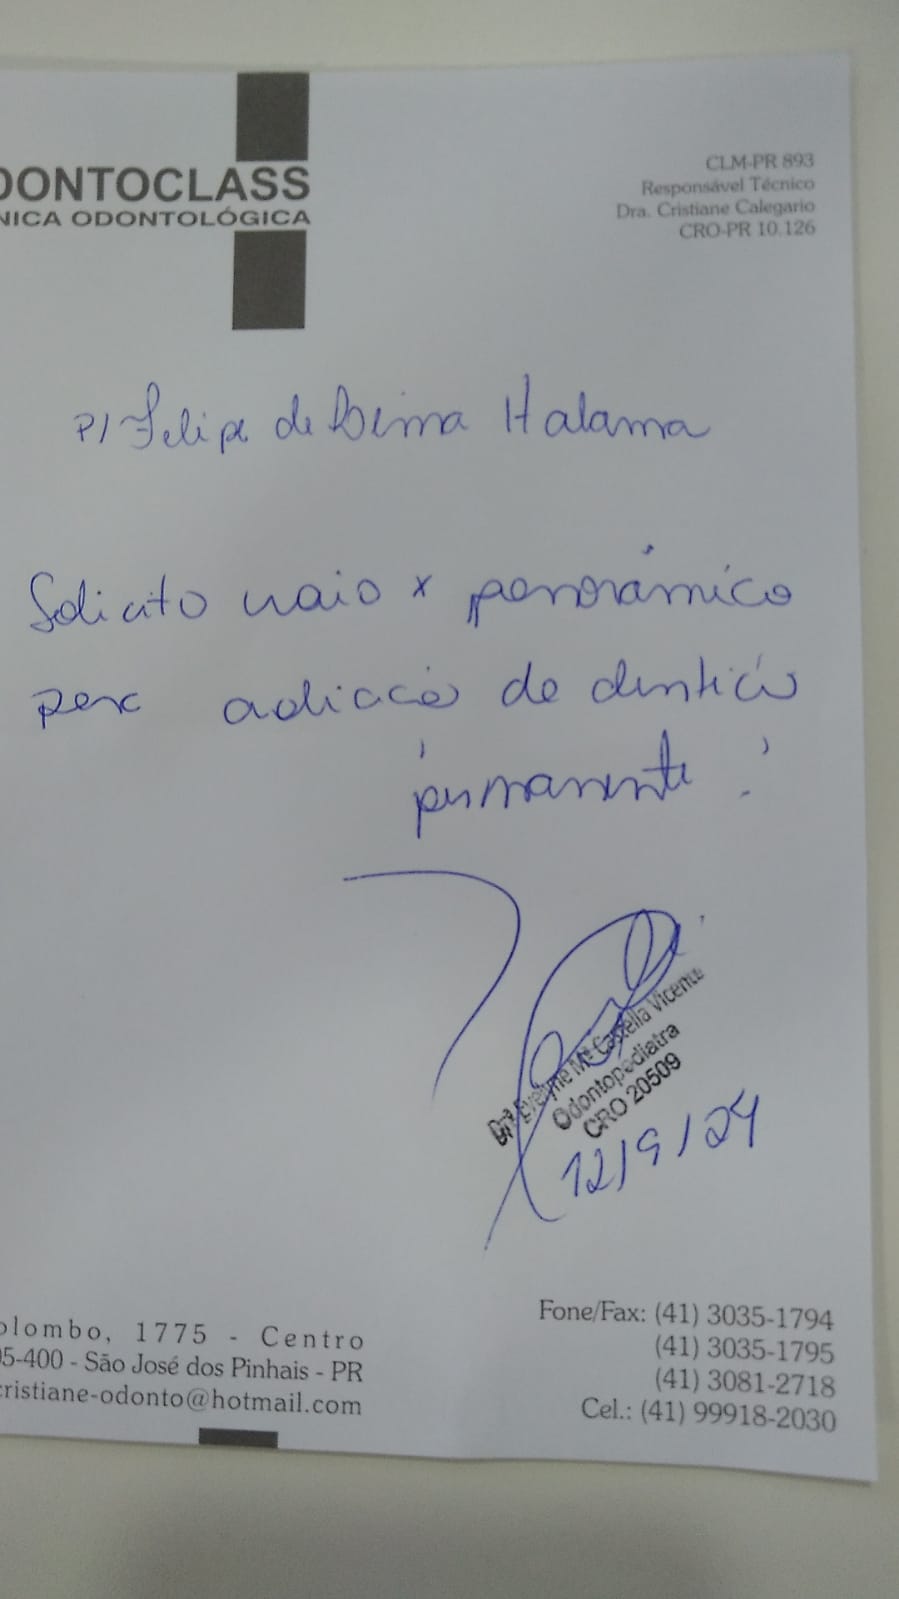 ODONTOCLASS
NICA ODONTOLÓGICA
CLM-PR 893
Responsável Técnico
Dra. Cristiane Calegario
CRO-PR 10.126
P/ Felipe de Lima Halama
Solicito raio x panorâmico
para de dentição
permanente
Drª Evelyne Mª Castella Vicente
Odontopediatra
CRO 20509
12/9/24
olombo, 1775 - Centro
05-400 - São José dos Pinhais - PR
cristiane-odonto@hotmail.com
Fone/Fax: (41) 3035-1794
(41) 3035-1795
(41) 3081-2718
Cel.: (41) 99918-2030